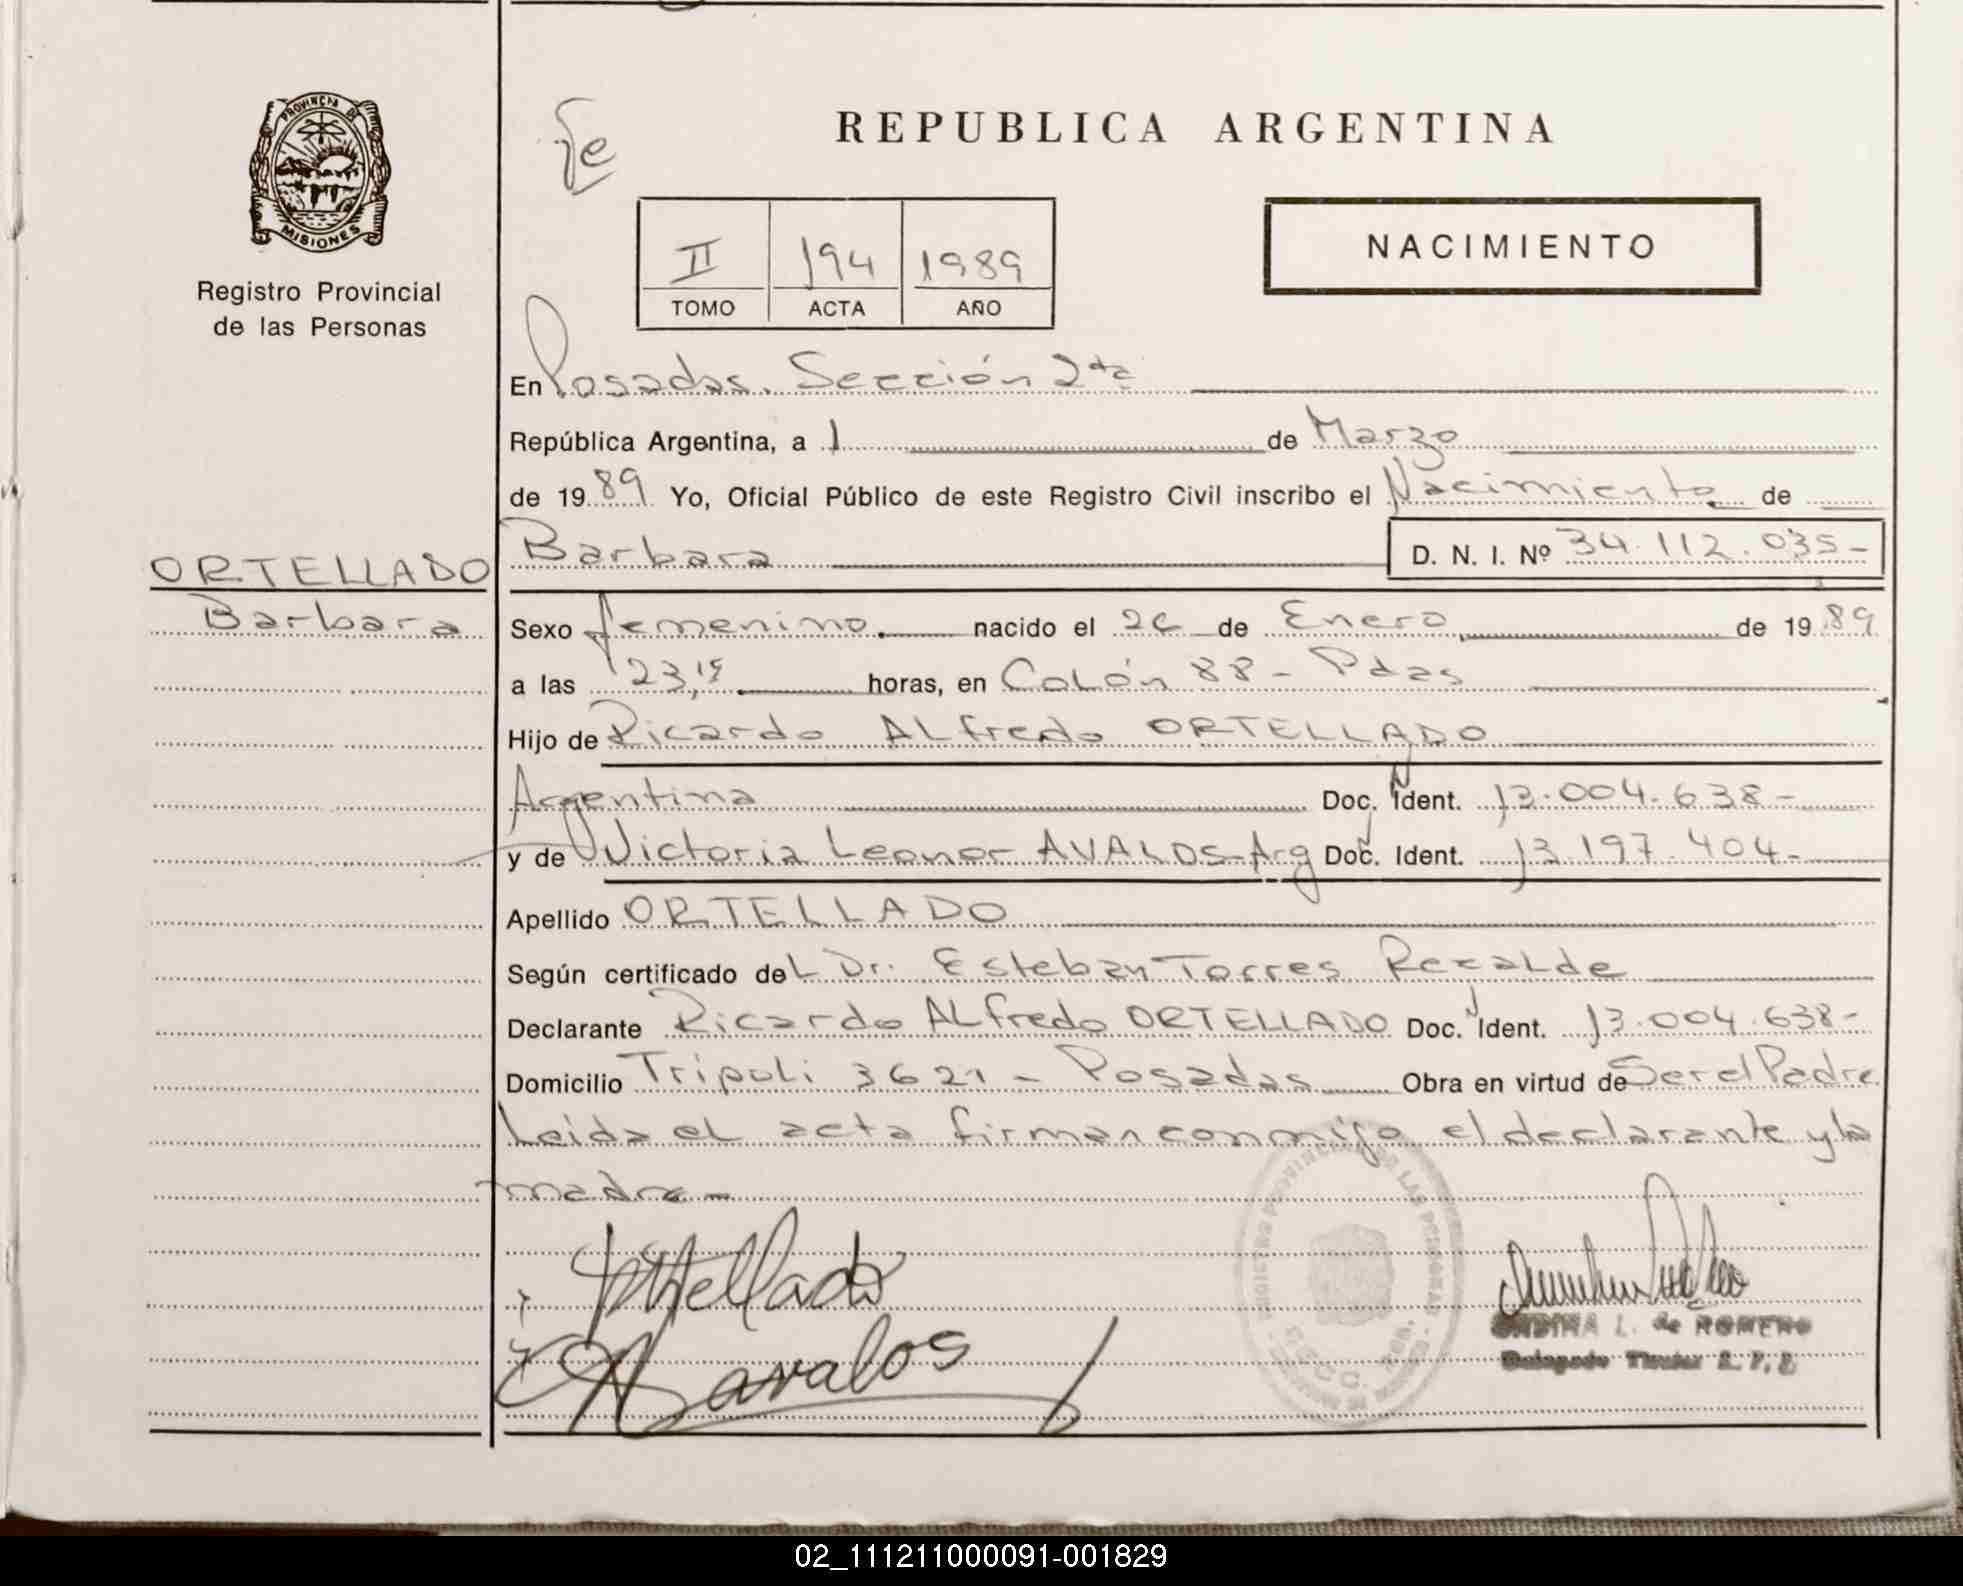 PROVINCIA DE
MISIONES
Registro Provincial
de las Personas
ORTELLADO
Barbara
REPUBLICA ARGENTINA
II 194 1989
TOMO ACTA AÑO
NACIMIENTO
En Posadas. Sección 2da
República Argentina, a 1 de Marzo
de 1989 Yo, Oficial Público de este Registro Civil inscribo el Nacimiento de
Barbara D. N. I. Nº 34.112.035-
Sexo femenino. nacido el 26 de Enero, de 1989
a las 23,15 horas, en Colón 88 - Pdas
Hijo de Ricardo Alfredo ORTELLADO
Argentina Doc. Ident. 13.004.638-
y de Victoria Leonor AVALOS-Arg Doc. Ident. 13.197.404-
Apellido ORTELLADO
Según certificado del Dr. Esteban Torres Recalde
Declarante Ricardo Alfredo ORTELLADO Doc. Ident. 13.004.638-
Domicilio Tripoli 3621 - Posadas Obra en virtud de Ser el Padre
Leida el acta firman conmigo el declarante y la
madre -
Ortellado
Avalos
ONDINA L. de ROMERO
Delegado Titular
02_111211000091-001829